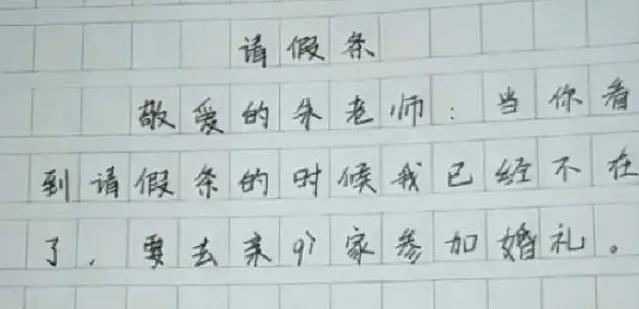 请假条
敬爱的朱老师：当你看
到请假条的时候我已经不在
了，要去亲爷家参加婚礼。